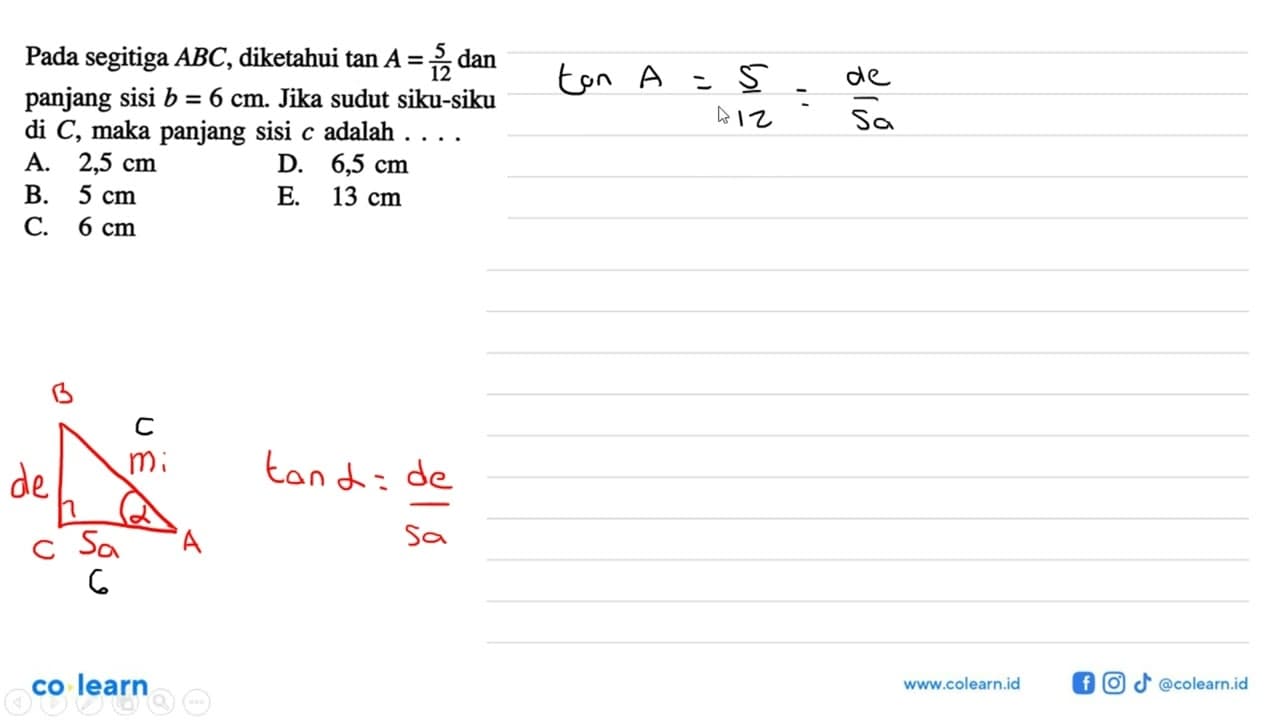 Pada segitiga ABC, diketahui tan A = 5/12 dan
panjang sisi b = 6 cm. Jika sudut siku-siku
di C, maka panjang sisi c adalah . . . .
A. 2,5 cm D. 6,5 cm
B. 5 cm E. 13 cm
C. 6 cm
tan A = 5/12 = de/sa
B
c
mi
de
α
C sa A
6
tan α = de/sa
co learn
www.colearn.id @colearn.id